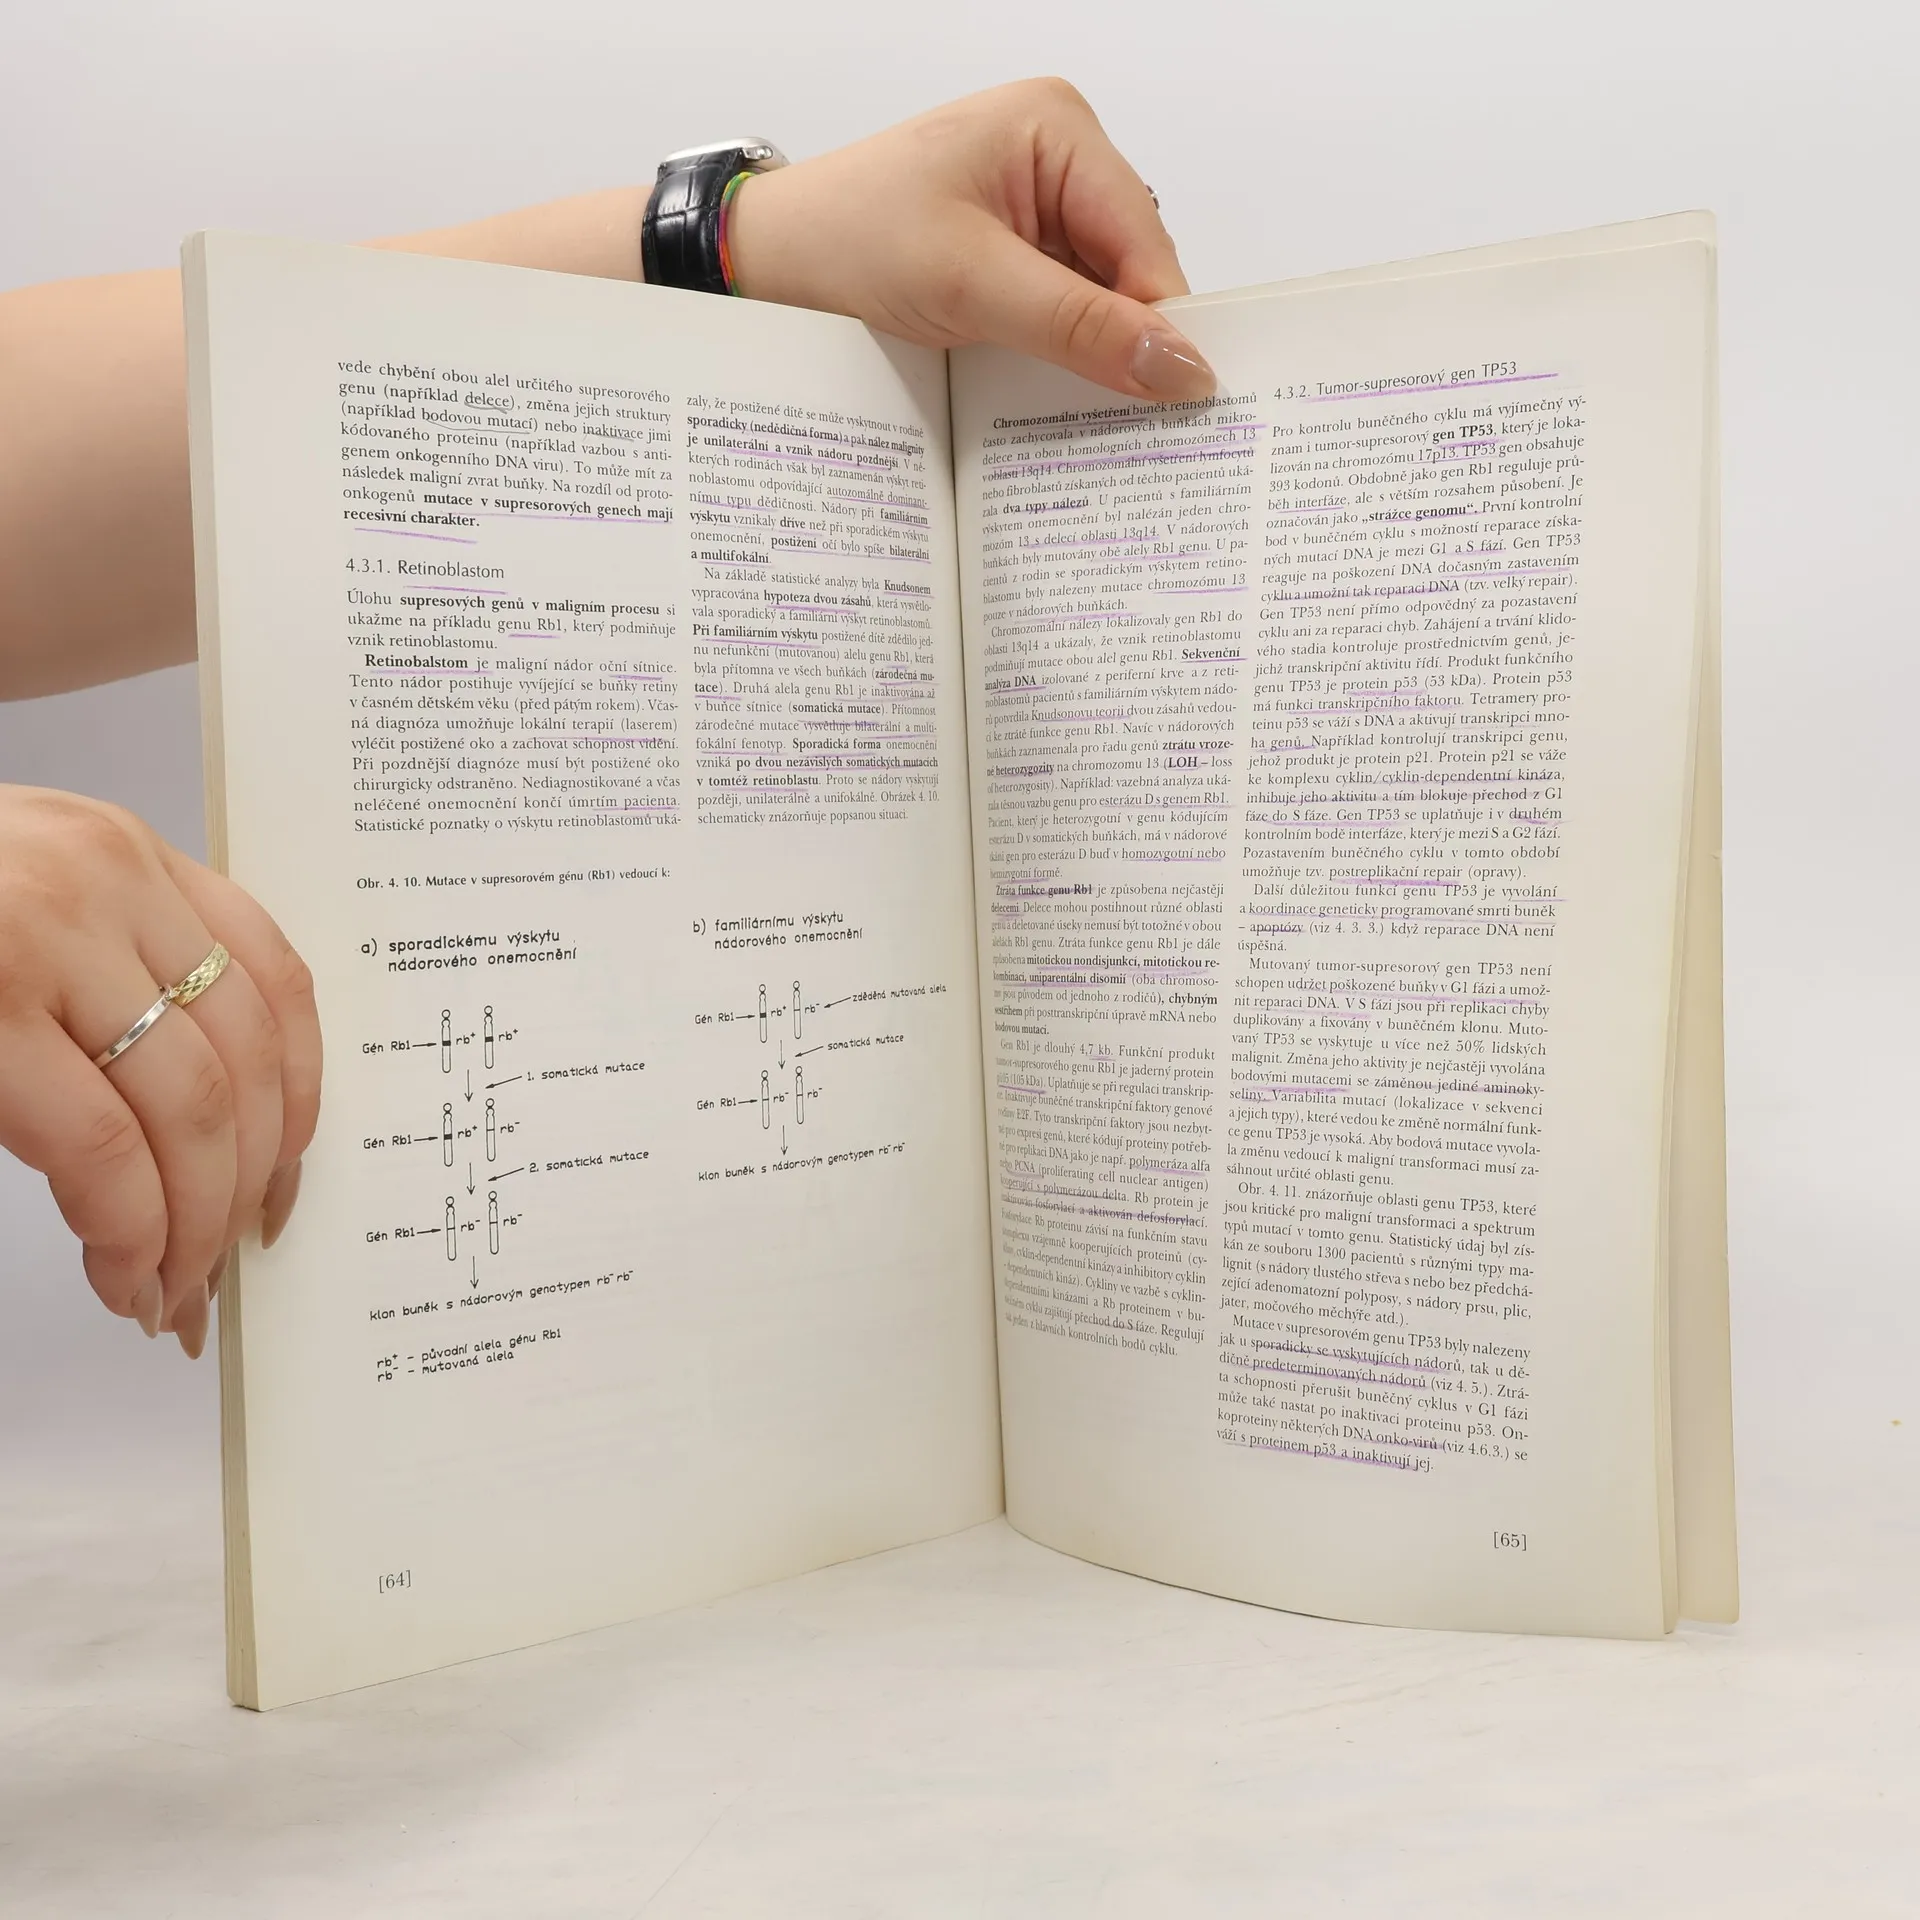 vede chybění obou alel určitého supresorového
genu (například delece), změna jejich struktury
(například bodovou mutací) nebo inaktivace jimi
kódovaného proteinu (například vazbou s anti-
genem onkogenního DNA viru). To může mít za
následek maligní zvrat buňky. Na rozdíl od proto-
onkogenů mutace v supresorových genech mají
recesivní charakter.
4.3.1. Retinoblastom
Úlohu supresových genů v maligním procesu si
ukažme na příkladu genu Rb1, který podmiňuje
vznik retinoblastomu.
Retinobalstom je maligní nádor oční sítnice.
Tento nádor postihuje vyvíjející se buňky retiny
v časném dětském věku (před pátým rokem). Včas-
ná diagnóza umožňuje lokální terapií (laserem)
vyléčit postižené oko a zachovat schopnost vidění.
Při pozdnější diagnóze musí být postižené oko
chirurgicky odstraněno. Nediagnostikované a včas
neléčené onemocnění končí úmrtím pacienta.
Statistické poznatky o výskytu retinoblastomů uká-
zaly, že postižené dítě se může vyskytnout v rodině
sporadicky (nedědičná forma) a pak nález malignity
je unilaterální a vznik nádoru pozdnější. V ně-
kterých rodinách však byl zaznamenán výskyt reti-
noblastomu odpovídající autozomálně dominant-
nímu typu dědičnosti. Nádory při familiárním
výskytu vznikaly dříve než při sporadickém výskytu
onemocnění, postižení očí bylo spíše bilaterální
a multifokální.
Na základě statistické analyzy byla Knudsonem
vypracována hypoteza dvou zásahů, která vysvětlo-
vala sporadický a familiární výskyt retinoblastomů.
Při familiárním výskytu postižené dítě zdědilo jed-
nu nefunkční (mutovanou) alelu genu Rb1, která
byla přítomna ve všech buňkách (zárodečná mu-
tace). Druhá alela genu Rb1 je inaktivována až
v buňce sítnice (somatická mutace). Přítomnost
zárodečné mutace vysvětluje bilaterální a multi-
fokální fenotyp. Sporadická forma onemocnění
vzniká po dvou nezávislých somatických mutacích
v tomtéž retinoblastu. Proto se nádory vyskytují
později, unilaterálně a unifokálně. Obrázek 4. 10.
schematicky znázorňuje popsanou situaci.
Obr. 4. 10. Mutace v supresorovém génu (Rb1) vedoucí k:
a) sporadickému výskytu
nádorového onemocnění
Gén Rb1 rb+ rb+
1. somatická mutace
Gén Rb1 rb+ rb-
2. somatická mutace
Gén Rb1 rb- rb-
klon buněk s nádorovým genotypem rb- rb-
rb+ - původní alela génu Rb1
rb- - mutovaná alela
b) familiárnímu výskytu
nádorového onemocnění
Gén Rb1 rb+ rb- zděděná mutovaná alela
somatická mutace
Gén Rb1 rb- rb-
klon buněk s nádorovým genotypem rb- rb-
[64]
Chromozomální vyšetření buněk retinoblastomů
často zachycovala v nádorových buňkách mikro-
delece na obou homologních chromozómech 13
v oblasti 13q14. Chromozomální vyšetření lymfocytů
nebo fibroblastů získaných od těchto pacientů uká-
zala dva typy nálezů. U pacientů s familiárním
výskytem onemocnění byl nalézán jeden chro-
mozóm 13 s delecí oblasti 13q14. V nádorových
buňkách byly mutovány obě alely Rb1 genu. U pa-
cientů z rodin se sporadickým výskytem retino-
blastomu byly nalezeny mutace chromozómu 13
pouze v nádorových buňkách.
Chromozomální nálezy lokalizovaly gen Rb1 do
oblasti 13q14 a ukázaly, že vznik retinoblastomu
podmiňují mutace obou alel genu Rb1. Sekvenční
analýza DNA izolované z periferní krve a z reti-
noblastomů pacientů s familiárním výskytem nádo-
rů potvrdila Knudsonovu teorii dvou zásahů vedou-
cí ke ztrátě funkce genu Rb1. Navíc v nádorových
buňkách zaznamenala pro řadu genů ztrátu vroze-
né heterozygozity na chromozomu 13 (LOH – loss
of heterozygosity). Například: vazebná analýza uká-
zala těsnou vazbu genu pro esterázu D s genem Rb1.
Pacient, který je heterozygotní v genu kódujícím
esterázu D v somatických buňkách, má v nádorové
tkáni gen pro esterázu D buď v homozygotní nebo
hemizygotní formě.
Ztráta funkce genu Rb1 je způsobena nejčastěji
delecemi. Delece mohou postihnout různé oblasti
genu a deletované úseky nemusí být totožné v obou
alelách Rb1 genu. Ztráta funkce genu Rb1 je dále
způsobena mitotickou nondisjunkcí, mitotickou re-
kombinací, uniparentální disomií (oba chromoso-
my jsou původem od jednoho z rodičů), chybným
sestřihem při posttranskripční úpravě mRNA nebo
bodovou mutací.
Gen Rb1 je dlouhý 4,7 kb. Funkční produkt
tumor-supresorového genu Rb1 je jaderný protein
p105 (105 kDa). Uplatňuje se při regulaci transkrip-
ce. Inaktivuje buněčné transkripční faktory genové
rodiny E2F. Tyto transkripční faktory jsou nezbyt-
né pro expresi genů, které kódují proteiny potřeb-
né pro replikaci DNA jako je např. polymeráza alfa
nebo PCNA (proliferating cell nuclear antigen)
kooperující s polymerázou delta. Rb protein je
inaktivován fosforylací a aktivován defosforylací.
Fosforylace Rb proteinu závisí na funkčním stavu
komplexu vzájemně kooperujících proteinů (cy-
kliny, cyklin-dependentní kinázy a inhibitory cyklin
- dependentních kináz). Cykliny ve vazbě s cyklin-
dependentními kinázami a Rb proteinem v bu-
něčném cyklu zajišťují přechod do S fáze. Regulují
jeden z hlavních kontrolních bodů cyklu.
4.3.2. Tumor-supresorový gen TP53
Pro kontrolu buněčného cyklu má vyjímečný vý-
znam i tumor-supresorový gen TP53, který je loka-
lizován na chromozómu 17p13. TP53 gen obsahuje
393 kodonů. Obdobně jako gen Rb1 reguluje prů-
běh interfáze, ale s větším rozsahem působení. Je
označován jako „strážce genomu“. První kontrolní
bod v buněčném cyklu s možností reparace získa-
ných mutací DNA je mezi G1 a S fází. Gen TP53
reaguje na poškození DNA dočasným zastavením
cyklu a umožní tak reparaci DNA (tzv. velký repair).
Gen TP53 není přímo odpovědný za pozastavení
cyklu ani za reparaci chyb. Zahájení a trvání klido-
vého stadia kontroluje prostřednictvím genů, je-
jichž transkripční aktivitu řídí. Produkt funkčního
genu TP53 je protein p53 (53 kDa). Protein p53
má funkci transkripčního faktoru. Tetramery pro-
teinu p53 se váží s DNA a aktivují transkripci mno-
ha genů. Například kontrolují transkripci genu,
jehož produkt je protein p21. Protein p21 se váže
ke komplexu cyklin/cyklin-dependentní kináza,
inhibuje jeho aktivitu a tím blokuje přechod z G1
fáze do S fáze. Gen TP53 se uplatňuje i v druhém
kontrolním bodě interfáze, který je mezi S a G2 fází.
Pozastavením buněčného cyklu v tomto období
umožňuje tzv. postreplikační repair (opravy).
Další důležitou funkcí genu TP53 je vyvolání
a koordinace geneticky programované smrti buněk
– apoptózy (viz 4. 3. 3.) když reparace DNA není
úspěšná.
Mutovaný tumor-supresorový gen TP53 není
schopen udržet poškozené buňky v G1 fázi a umož-
nit reparaci DNA. V S fázi jsou při replikaci chyby
duplikovány a fixovány v buněčném klonu. Muto-
vaný TP53 se vyskytuje u více než 50% lidských
malignit. Změna jeho aktivity je nejčastěji vyvolána
bodovými mutacemi se záměnou jediné aminoky-
seliny. Variabilita mutací (lokalizace v sekvenci
a jejich typy), které vedou ke změně normální funk-
ce genu TP53 je vysoká. Aby bodová mutace vyvola-
la změnu vedoucí k maligní transformaci musí za-
sáhnout určité oblasti genu.
Obr. 4. 11. znázorňuje oblasti genu TP53, které
jsou kritické pro maligní transformaci a spektrum
typů mutací v tomto genu. Statistický údaj byl zís-
kán ze souboru 1300 pacientů s různými typy ma-
lignit (s nádory tlustého střeva s nebo bez předchá-
zející adenomatozní polyposy, s nádory prsu, plic,
jater, močového měchýře atd.).
Mutace v supresorovém genu TP53 byly nalezeny
jak u sporadicky se vyskytujících nádorů, tak u dě-
dičně predeterminovaných nádorů (viz 4. 5.). Ztrá-
ta schopnosti přerušit buněčný cyklus v G1 fázi
může také nastat po inaktivaci proteinu p53. On-
koproteiny některých DNA onko-virů (viz 4.6.3.) se
váží s proteinem p53 a inaktivují jej.
[65]